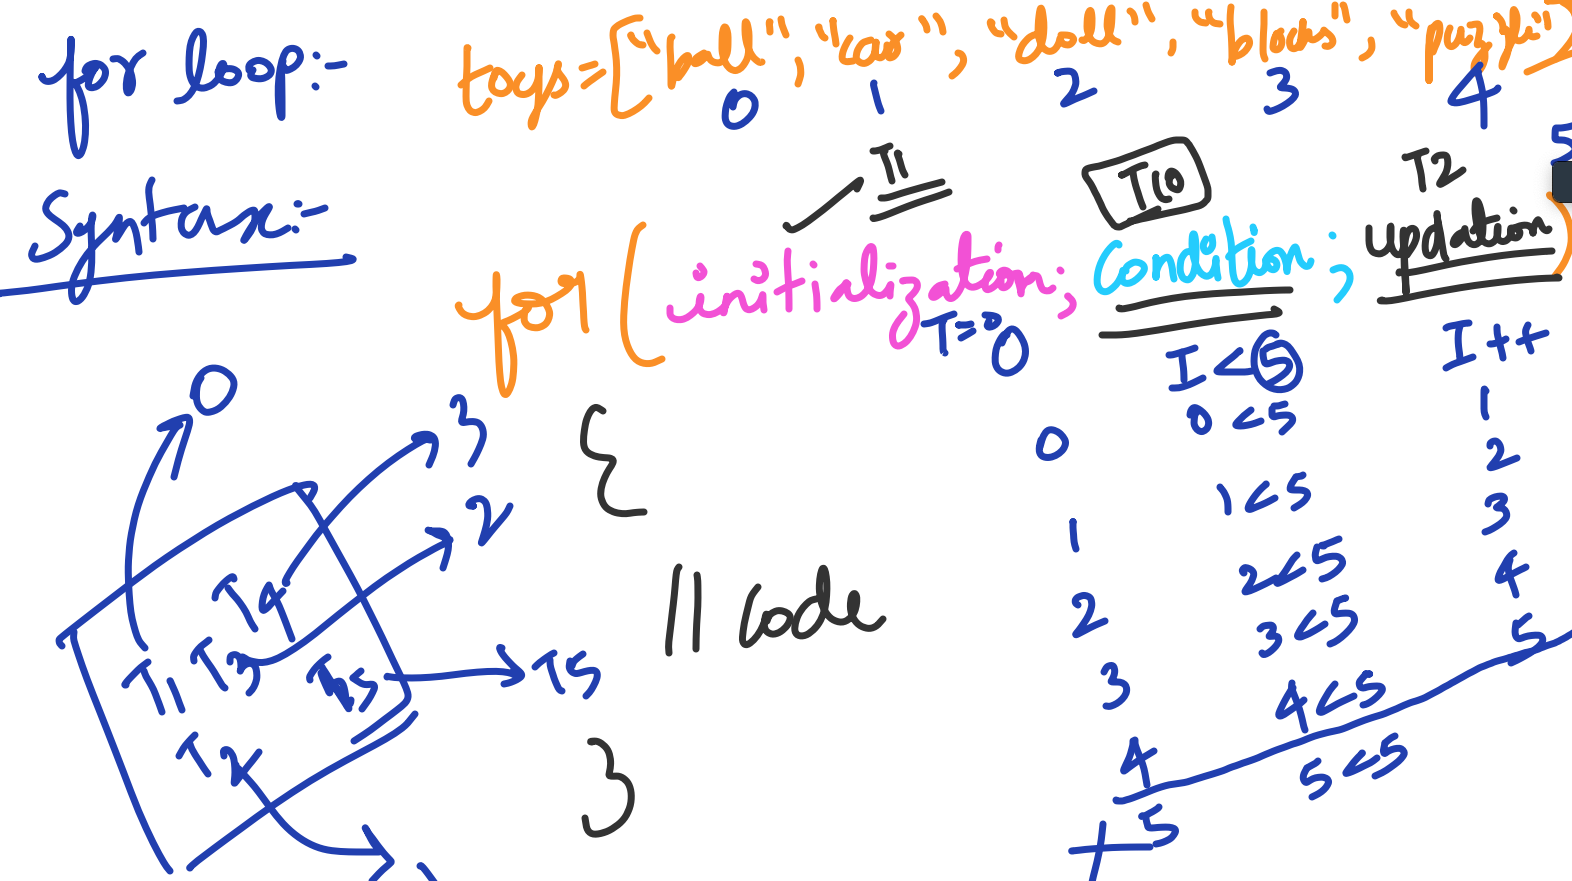 for loop:-
toys=["ball", "car", "doll", "blocks", "puzzle"]
0 1 2 3 4 5
Syntax:-
T1 T10 T2
for (initialization; condition; updation)
I=0 I<5 I++
{
0 0<5 1
1 1<5 2
2 2<5 3
3 3<5 4
4 4<5 5
5 5<5
// code
}
0
3
2
T4
T1 T3 T5
T2